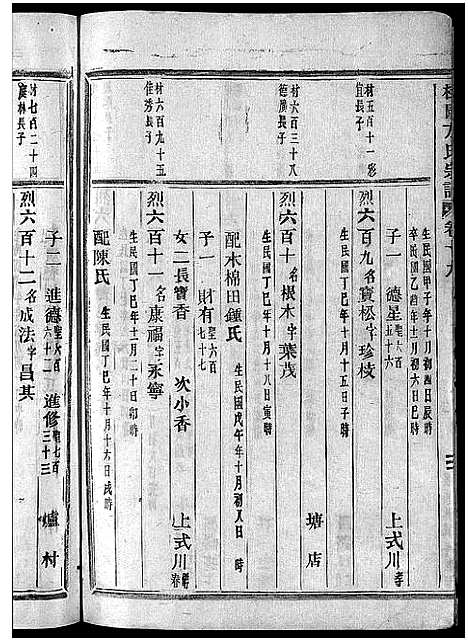 生民國甲子年十月初四日辰時
卒民國乙酉年十二月初六日巳時
子一 德星 聖六百五十六
上式川
村五百十一 彩
宜長子
烈六百九 名寶松 字珍枝
生民國丁巳年十月十五日子時
塘店
村六百三十八
德廣長子
烈六百十 名根木 字葉茂
生民國丁巳年十月十八日寅時
配木棉田鍾氏 生民國戊午年十月初八日時
子一 財有 聖六百七十七
女二 長寶香 次小香
上式川
村六百九十五
佳秀長子
烈六百十一 名康福 字永寧
生民國丁巳年十二月二十日卯時
配陳氏 生民國丁巳年十月十六日戌時
子二 進德 聖六百六十二 進修 聖七百三十三
爐村
村七百二十四
林長子
烈六百十二 名成法 字昌其